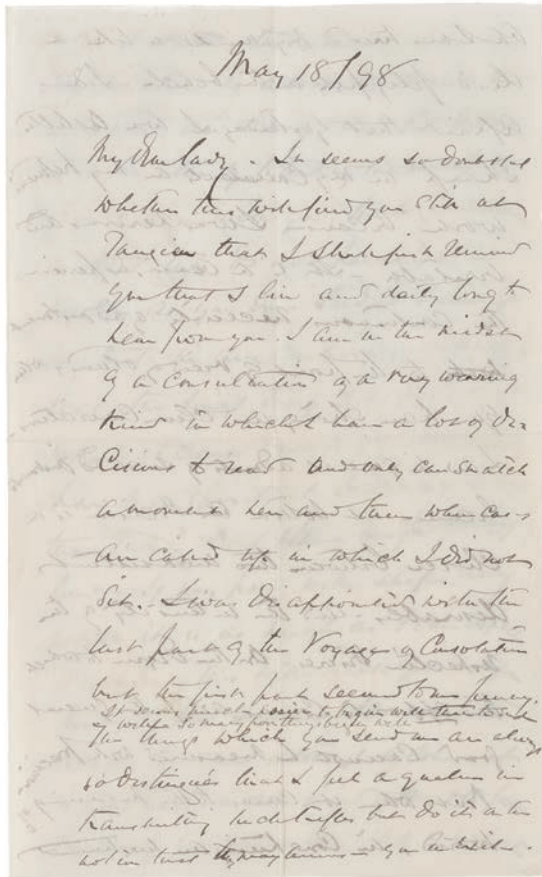 May 18/98
My dear lady. It seems so doubtful
whether this will find you still at
Tangier that I shall just remind
you that I live and daily long to
hear from you. I am in the midst
of a consultation of a very wearing
kind in which I have a lot of de-
cisions to read and only can snatch
a moment here and there when cases
are called up in which I did not
sit. I was disappointed with the
last part of the Voyage of Consolation
but the first part seemed to me funny.
It seems much easier to begin well than to end
so with so many things
The things which you send me are always
so distingués that I feel a qualm in
transmitting but do it on the
notion that they may amuse you